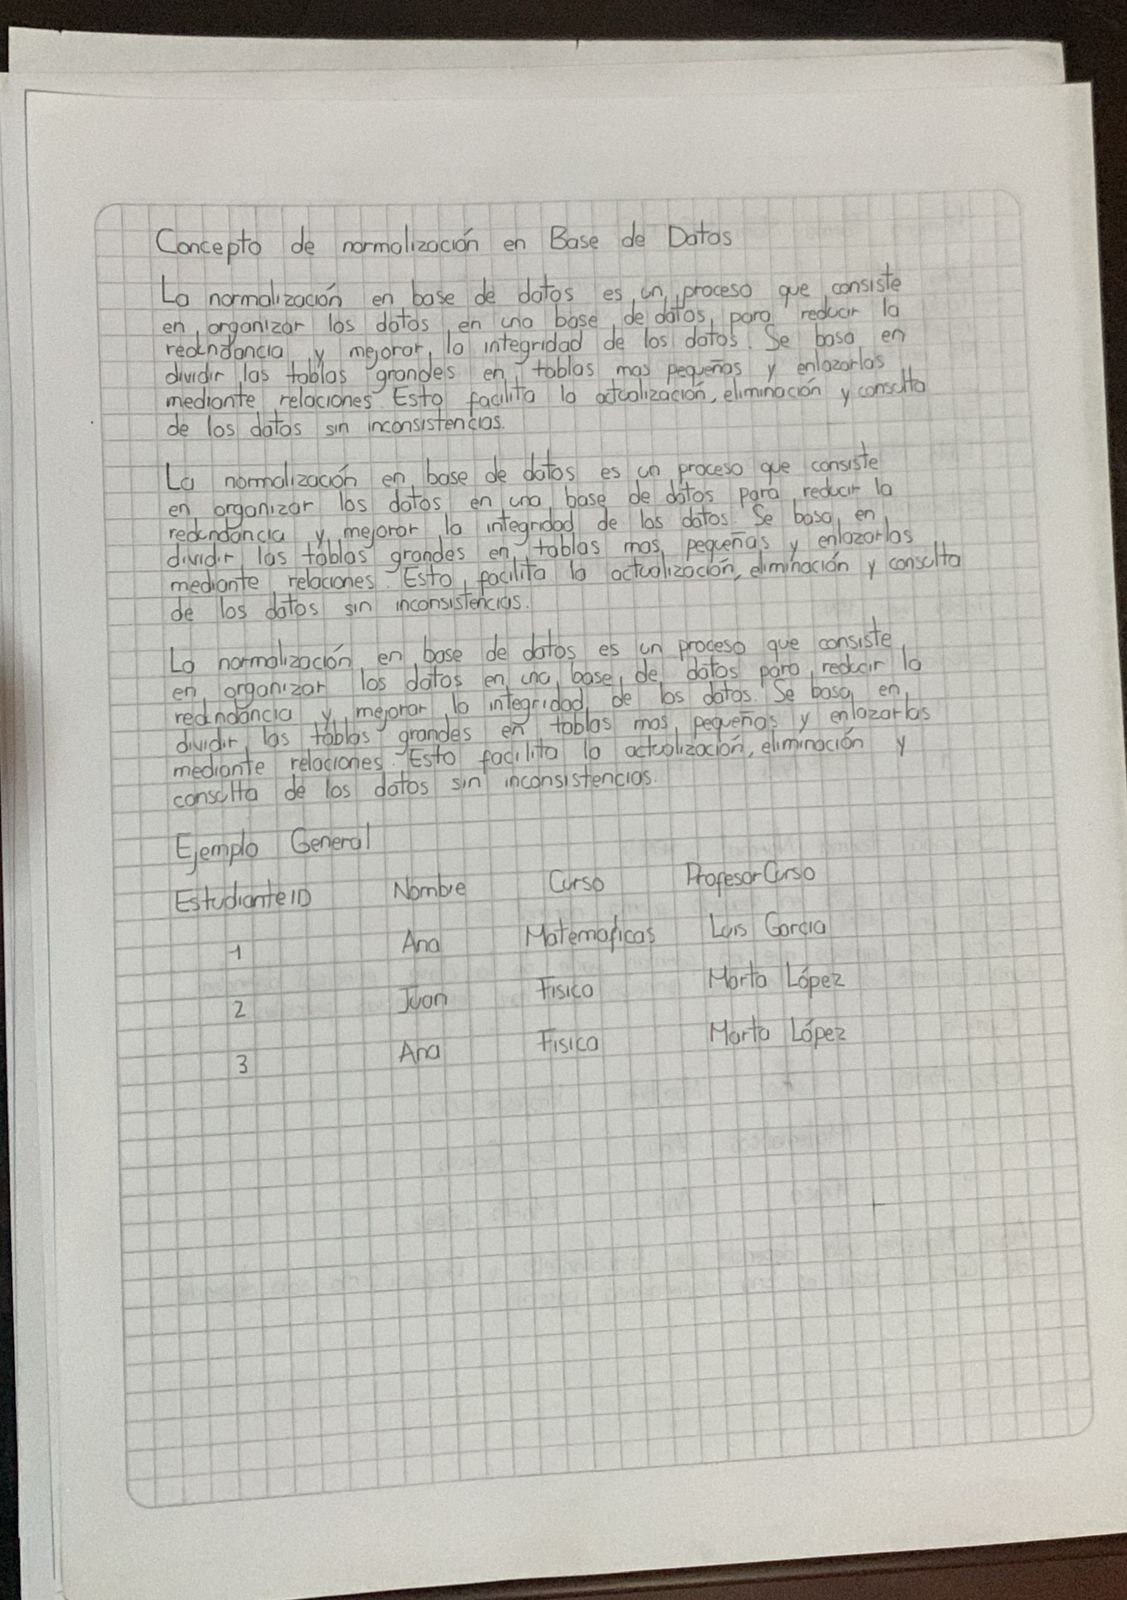 Concepto de normalización en Base de Datos
La normalización en base de datos es un proceso que consiste
en organizar los datos en una base de datos para reducir la
redundancia y mejorar la integridad de los datos. Se basa en
dividir las tablas grandes en tablas mas pequeñas y enlazarlas
mediante relaciones. Esto facilita la actualización, eliminación y consulta
de los datos sin inconsistencias.
La normalización en base de datos es un proceso que consiste
en organizar los datos en una base de datos para reducir la
redundancia y mejorar la integridad de los datos. Se basa en
dividir las tablas grandes en tablas mas pequeñas y enlazarlas
mediante relaciones. Esto facilita la actualización, eliminación y consulta
de los datos sin inconsistencias.
La normalización en base de datos es un proceso que consiste
en organizar los datos en una base de datos para reducir la
redundancia y mejorar la integridad de los datos. Se basa en
dividir las tablas grandes en tablas mas pequeñas y enlazarlas
mediante relaciones. Esto facilita la actualización, eliminación y
consulta de los datos sin inconsistencias.
Ejemplo General
EstudianteID Nombre Curso ProfesorCurso
1 Ana Matematicas Luis Garcia
2 Juan Fisica Marta López
3 Ana Fisica Marta López